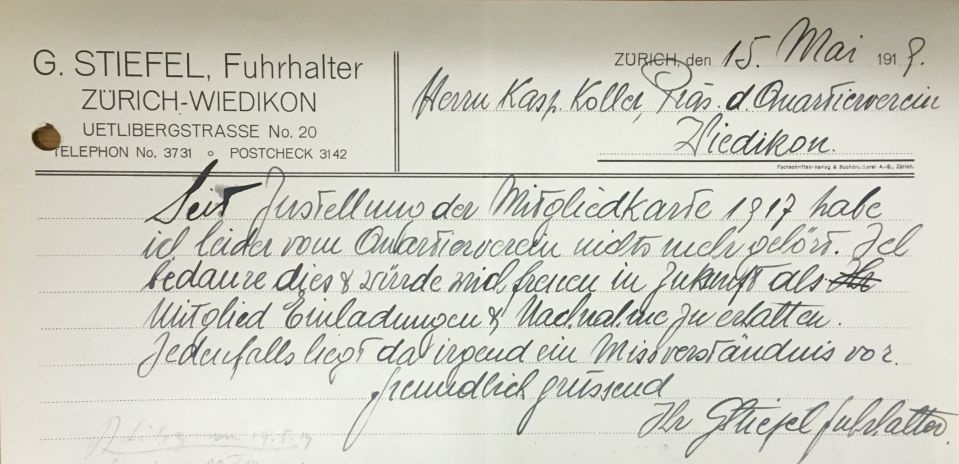 G. STIEFEL, Fuhrhalter
ZÜRICH-WIEDIKON
UETLIBERGSTRASSE No. 20
TELEPHON No. 3731 o POSTCHECK 3142
ZÜRICH, den 15. Mai 1919.
Herrn Kasp. Koller, Präs. d Quartierverein
Wiedikon.
Fachschriften-Verlag & Buchdruckerei A.-G., Zürich.
Seit Zustellung der Mitgliedkarte 1917 habe
ich leider vom Quartierverein nichts mehr gehört. Ich
bedaure dies & würde mich freuen in Zukunft als
Mitglied Einladungen & Nachnahme zu erhalten.
Jedenfalls liegt da irgend ein Missverständnis vor.
freundlich grüssend
Ihr G Stiefel Fuhrhalter.